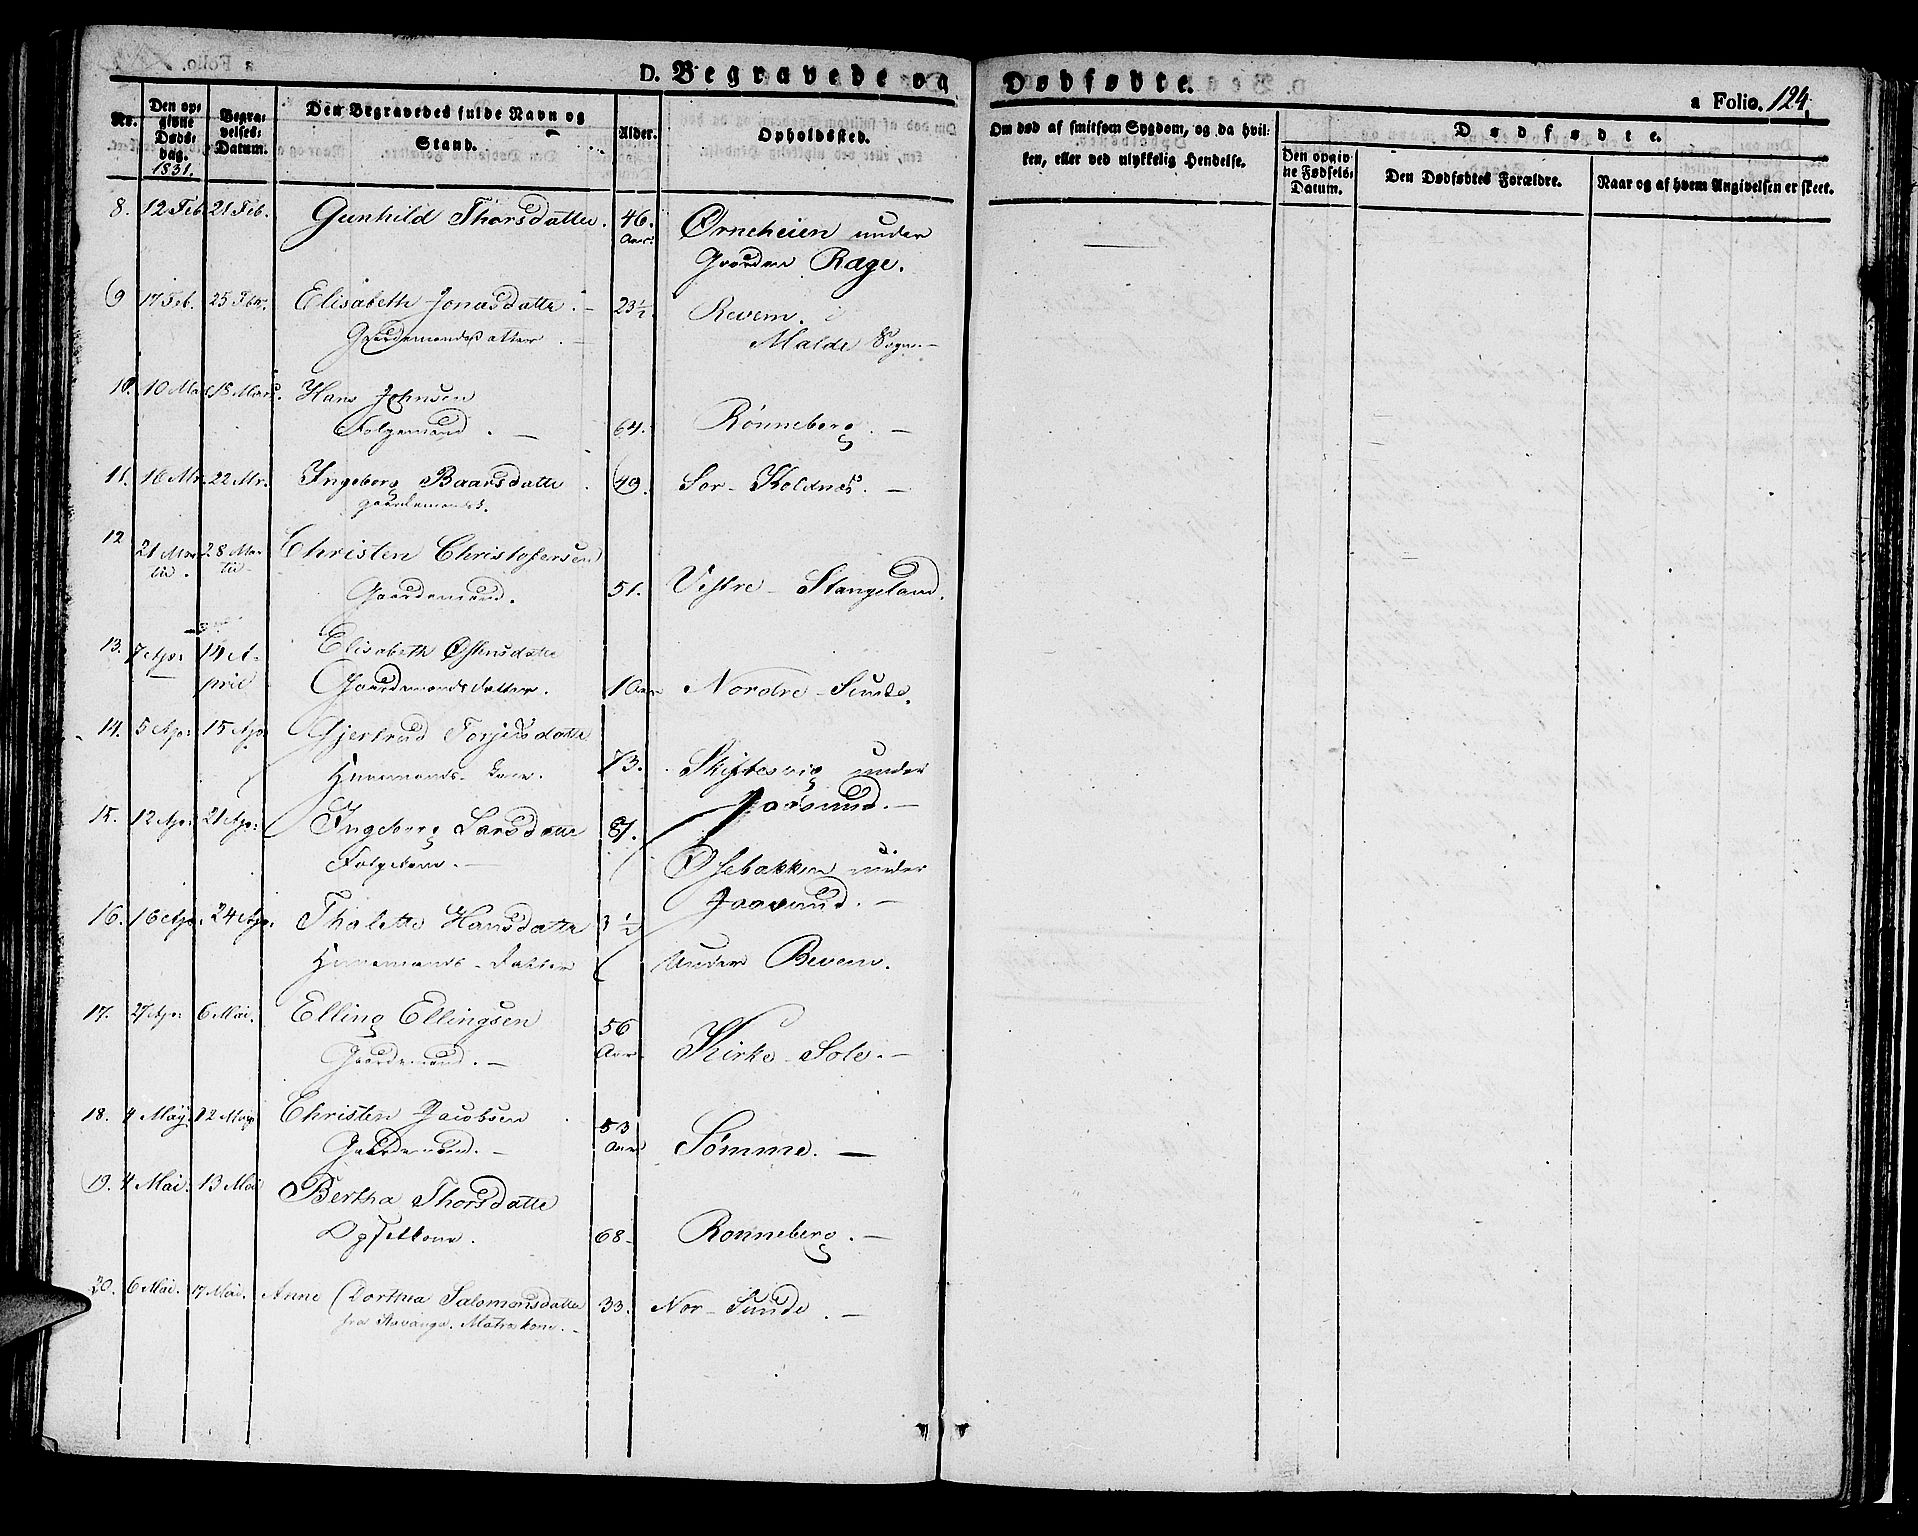 D. Begravede og Dødfødte.
a Folio. 124,
No. Den opgivne Dødsdag. 1831. Begravelses-Datum. Den Begravedes fulde Navn og Stand. Alder. Opholdssted. Om død af smitsom Sygdom, og da hvilken, eller ved ulykkelig Hendelse. Dødfødte.
Den opgivne Fødsels-Datum. Den Dødfødtes Forældre. Naar og af hvem Angivelsen er skeet.
8. 12 Feb. 21 Feb. Gunhild Thorsdatter. 46. Ørneheien under
Aar. Gaarden Ræge.
9 17 Feb. 25 Fbr. Elisabeth Jonasdatter. 23½ Revem.
Gaardemandsdatter Malde Sogn.
10. 10 Mar 18 Mars. Hans Johnsen
Folgemand. 64. Rönneberg.
11. 16 Mr. 22 Mr. Ingeborg Baarsdatte 49. Sör-Koldnæs.
gaardemands.
12 21 Mar- 28 Mar- Christen Christofersen
tii. tii Gaardemand. 51. Vestre-Stangeland.
13. 7 Apr: 14 A- Elisabeth Østensdatte
pril Gaardemandsdatter. 1 Aar Nordre-Sunde.
14. 5 Apr: 15 Apr Gjertrud Torjersdatte
Huusmands-kone. 73. Skiftesvig under
Jaasund.
15. 12 Apr: 21 Apr: Ingeborg Larsdatte 87.
Folgekone. Øsebakken under
Jaasund.
16. 16 Apr. 24 Apr. Thalette Hansdatte 3½
Huusmands-datter Under Revem.
17. 27 Apr: 6 Mai. Elling Ellingsen 56
Gaardemand. Aar. Kirke-Sole.
18. 4 May. 12 May Christen Jacobsen 53
Gaardemand. Aar Sömme.
19. 4 Mai. 13 Mai Bertha Thorsdatte
68. Ronneberg.
20. 6 Mai. 17 Mai. Anne Dorthea Salomonsdatter 33. Nor-Sunde.
fra Stavanger. Matroskone.